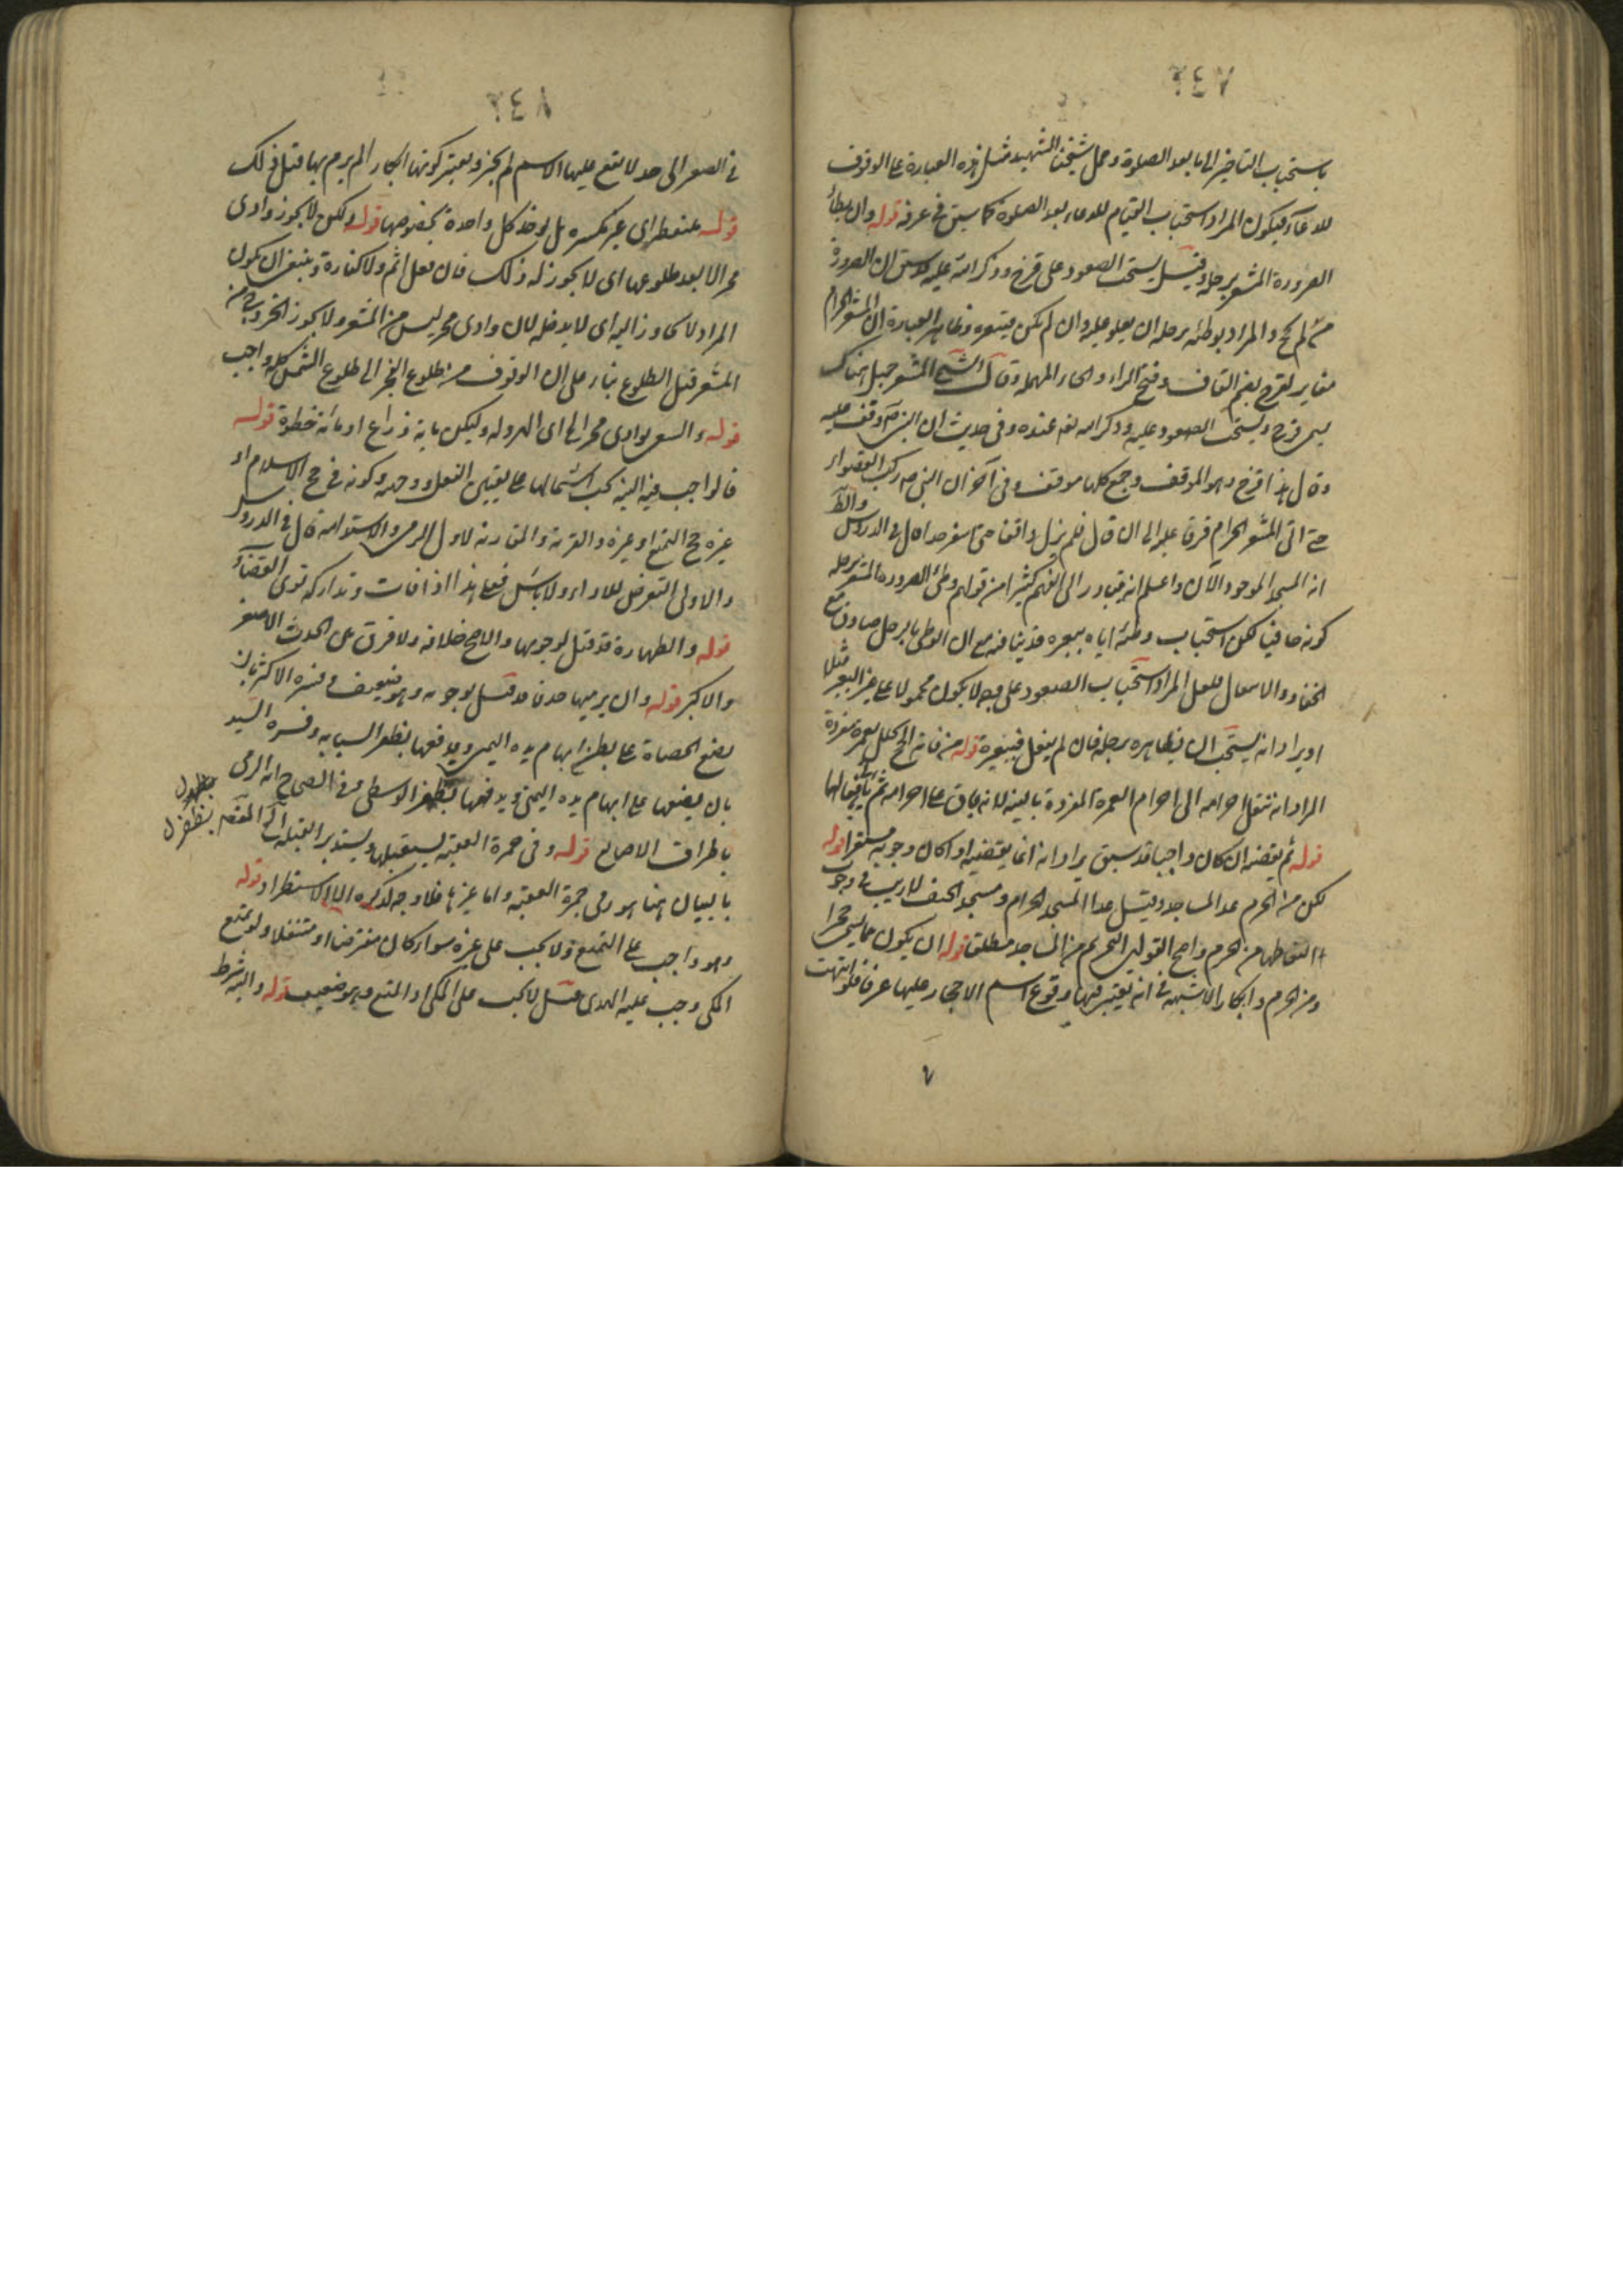 باستحباب التاخير الى ما بعد الصلوة وحمل شيخنا الشهيد مثل هذه العبارة على الوقوف
للدعاء فيكون المراد استحباب القيام للدعاء بعد الصلوة كما سبق في عرفة قوله وان يطأ
الصرورة المشعر برجله وقيل يستحب الصعود على قزح وذكر الله عليه قد سبق ان الصرورة
من لم يحج والمراد بوطئه برجله ان يعلو عليه وان لم يكن فببعيره وظاهر العبارة ان المشعر الحرام
مغاير لقزح بضم القاف وفتح الزاء والحاء المهملة وقال الشيخ المشعر جبل هناك
يسمى قزح ويستحب الصعود عليه وذكر الله تعالى عنده وفي حديث ان النبي ص وقف عليه
وقال هذا قزح وهو الموقف وجمع كلها موقف وفي آخر ان النبي ص ركب القصواء
حتى اتى المشعر الحرام فرقا عليه الى ان قال فلم يزل واقفا حتى اسفر جدا قال في الدروس والظ
انه المسجد الموجود الآن واعلم انه يتبادر الى الفهم كثيرا من قولهم وطئ الصرورة المشعر برجله
كونه حافيا لكن استحباب وطئه اياه ببعيره قد ينافيه مع ان الوطئ بالرجل صادق مع
الخف والانعال فلعل المراد استحباب الصعود على وجه لا يكون محمولا على غير البعير مثلا
او يراد انه يستحب ان يطأه برجله فان لم يفعل فببعيره قوله من فاته الحج تحلل بعمرة مفردة
المراد انه ينقل احرامه الى احرام العمرة المفردة بالنية لانه باق على احرامه ثم ياتي بافعالها
قوله ثم يقضيه ان كان واجبا قد سبق يراد انه انما يقضيه اذا كان وجوبه مستقرا قوله
لكن من الحرم عدا المساجد وقيل عدا المسجد الحرام ومسجد الخيف لا ريب في وجوب
التقاطها من الحرم واصح القولين التحريم من المساجد مطلقا قوله ان يكون مما يسمى حجرا
ومن الحرم وابكارا لا شبهة في انه يعتبر فيها وقوع اسم الاحجار عليها عرفا فلو انتهت
في الصغر الى حد لا يقع عليها الاسم لم يجز ويعتبر كونها ابكارا لم يرم بها قبل ذلك
قوله منعطرا اي غير مكسرة بل يوخذ كل واحدة بخصوصها قوله ولكن لا يجوز وادي
محسر الا بعد طلوعها اي لا يجوز له ذلك فان فعل اثم ولا كفارة وينبغي ان يكون
المراد لا يتجاوز اليه اي لا يدخله لان وادي محسر ليس من المشعر ولا يجوز الخروج من
المشعر قبل الطلوع بناء على ان الوقوف من طلوع الفجر الى طلوع الشمس كله واجب
قوله والسعي بوادي محسر الخ اي الهرولة وليكن ماية ذراع او مائة خطوة قوله
فالواجب فيه النية يجب اشتمالها على تعيين الفعل ووجهه وكونه في حج الاسلام او
غيره حج التمتع او غيره والقربة والمقارنة لاول الرمي والاستدامة قال في الدروس
والاولى التعرض للاداء ولا باس فعلى هذا اذا فات وتداركه نوى القضاء
قوله والطهارة قد قيل بوجوبها والاصح خلافه ولا فرق بين الحدث الاصغر
والاكبر قوله وان يرميها خذفا قد قيل بوجوبه وهو ضعيف وفسره الاكثر بان
يضع الحصاة على بطن ابهام يده اليمنى ويدفعها بظفر السبابة وفسره السيد
بان يضعها على ابهام يده اليمنى ويدفعها بظفر الوسطى وفي الصحاح انه الرمي
باطراف الاصابع قوله وفي جمرة العقبة يستقبلها ويستدبر القبلة الخ
بالبيان هنا هو رمي جمرة العقبة واما غيرها فلا وجه لذكره الا الاستطراد قوله
وهو واجب على المتمتع ولا يجب على غيره سواء كان مفترضا او متنفلا ولو تمتع
المكي وجب عليه الهدي قيل لا يجب على المكي اذا تمتع وهو ضعيف قوله والنية شرط